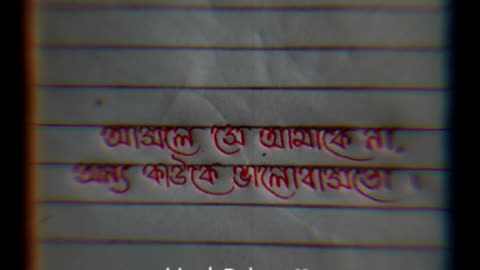 আসলে সে আমাকে না,
অন্য কাউকে ভালোবাসতো।